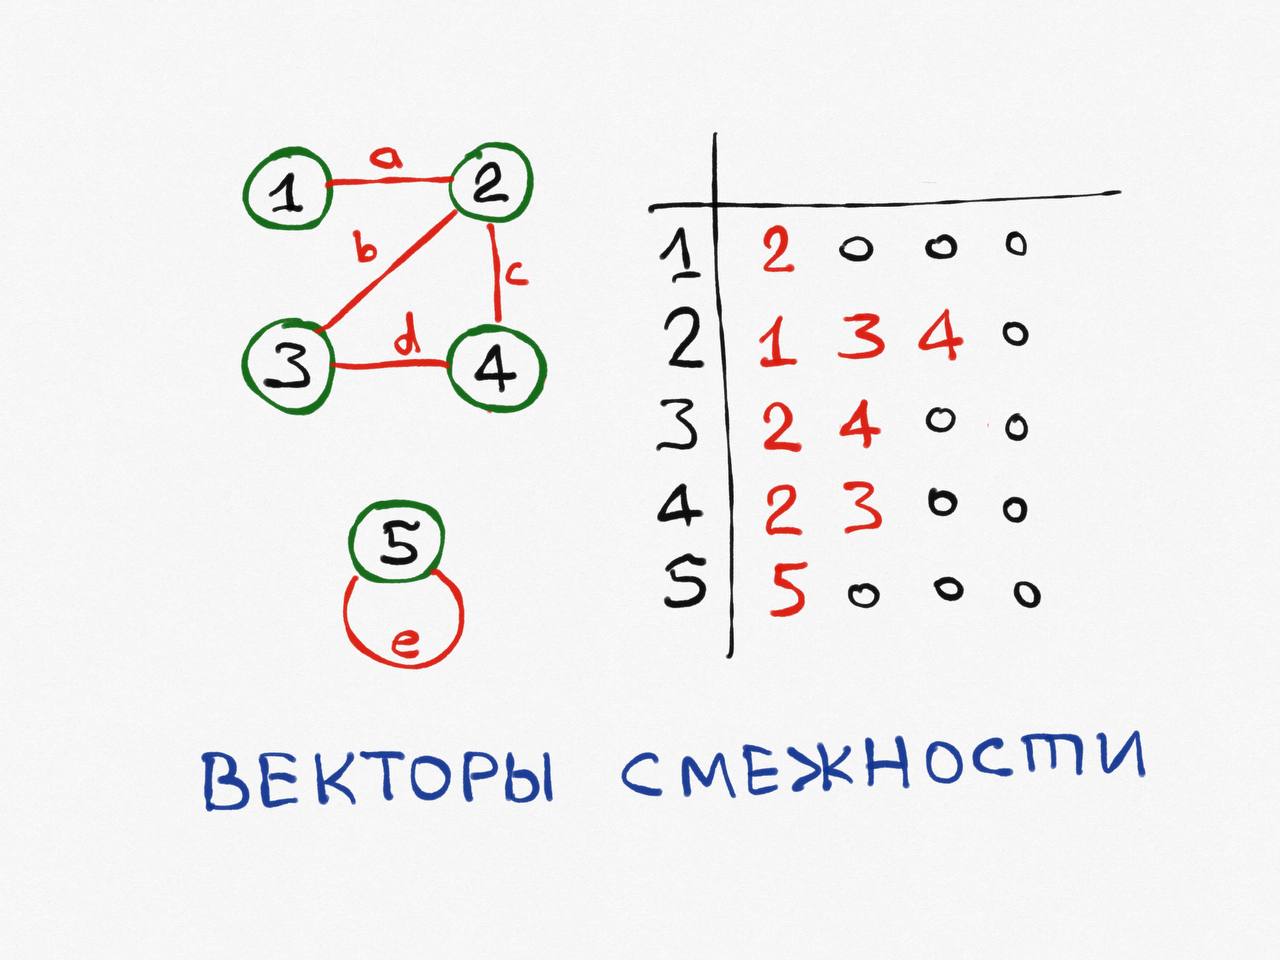 a
1 2
b c
d
3 4
5
e
1 2 0 0 0
2 1 3 4 0
3 2 4 0 0
4 2 3 0 0
5 5 0 0 0
ВЕКТОРЫ СМЕЖНОСТИ